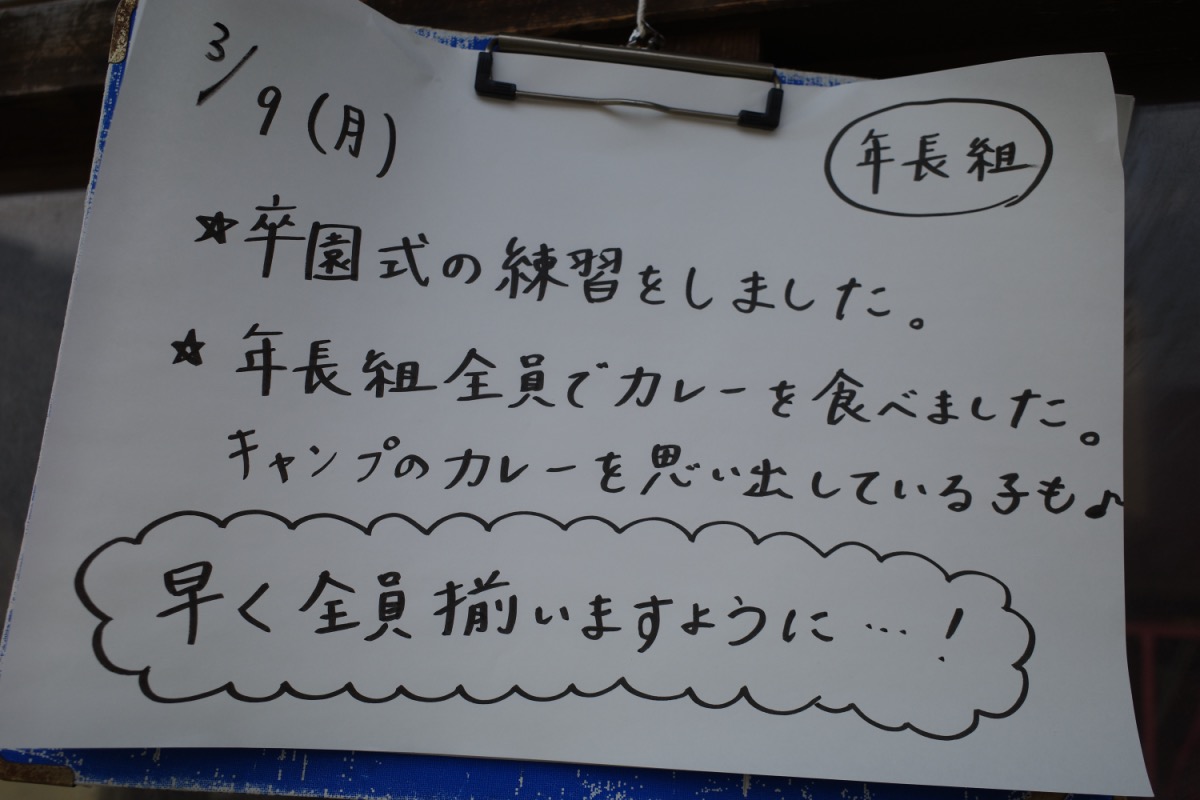 3/9(月)
年長組
☆卒園式の練習をしました。
☆年長組全員でカレーを食べました。
キャンプのカレーを思い出している子も♪
早く全員揃いますように…!